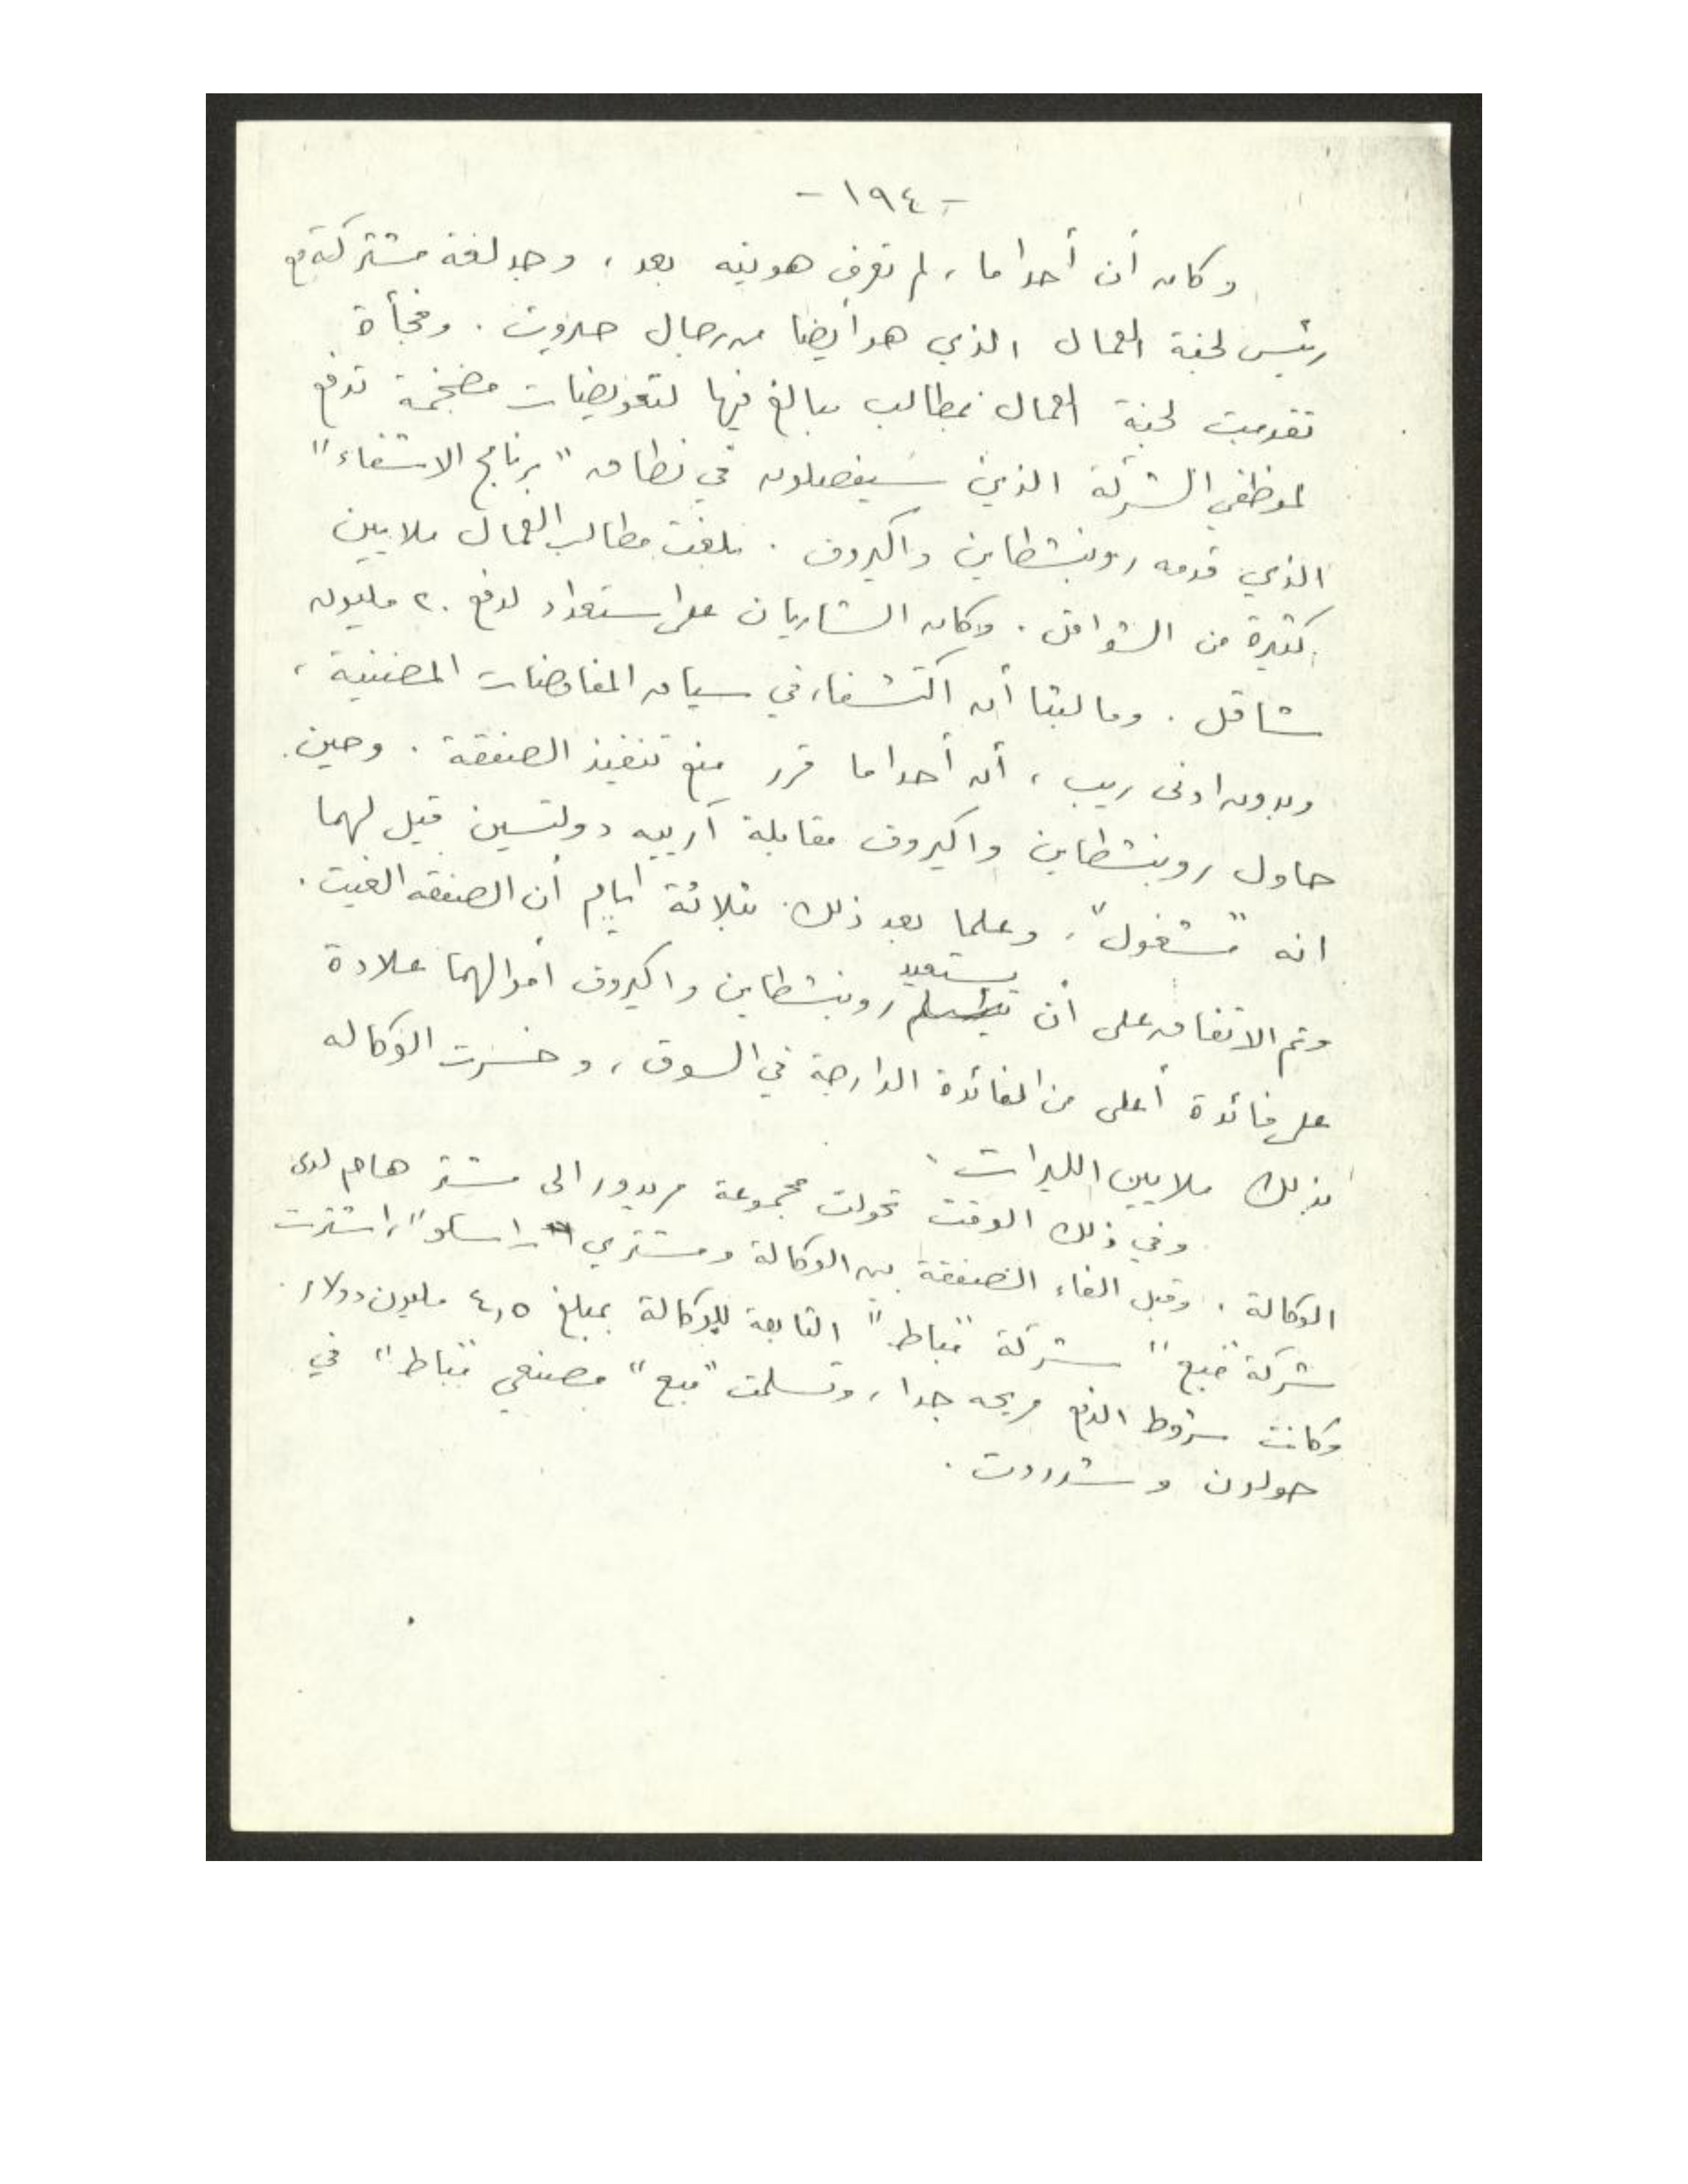 - ١٩٤ -
وكان أن أحدا ما، لم تعرف هويته بعد، وجد لغة مشتركة مع
رئيس لجنة العمال الذي هو أيضا من رجال حيروت. وفجأة
تقدمت لجنة العمال بمطالب مبالغ فيها لتعويضات مضخمة تدفع
لموظفي الشركة الذين سيفصلون في نطاق "برنامج الاشفاء"
الذي قدمه روبنشطاين واكيروف. بلغت مطالب العمال ملايين
كثيرة من الشواقل. وكان الشاريان على استعداد لدفع ٢٠ مليون
شاقل. وما لبثا أن اكتشفا، في سياق المفاوضات المضنية،
وبدون ادنى ريب، أن أحدا ما قرر منع تنفيذ الصفقة. وحين
حاول روبنشطاين واكيروف مقابلة آرييه دولتسين قيل لهما
انه "مشغول"، وعلما بعد ذلك بثلاثة أيام أن الصفقه الغيت.
وتم الاتفاق على أن يستعيد روبنشطاين واكيروف أموالهما علاوة
على فائدة أعلى من الفائدة الدارجة في السوق، وخسرت الوكاله
بذلك ملايين الليرات.
وفي ذلك الوقت تحولت مجموعة مريدور الى مشتر هام لدى
الوكالة. وقبل الغاء الصفقة بين الوكالة ومشتري "راسكو"، اشترت
شركة "مبع" شركة "مباط" التابعة للوكالة بمبلغ ٤,٥ مليون دولار.
وكانت شروط الدفع مريحه جدا، وتسلمت "مبع" مصنعي "مباط" في
حولون وشديروت.